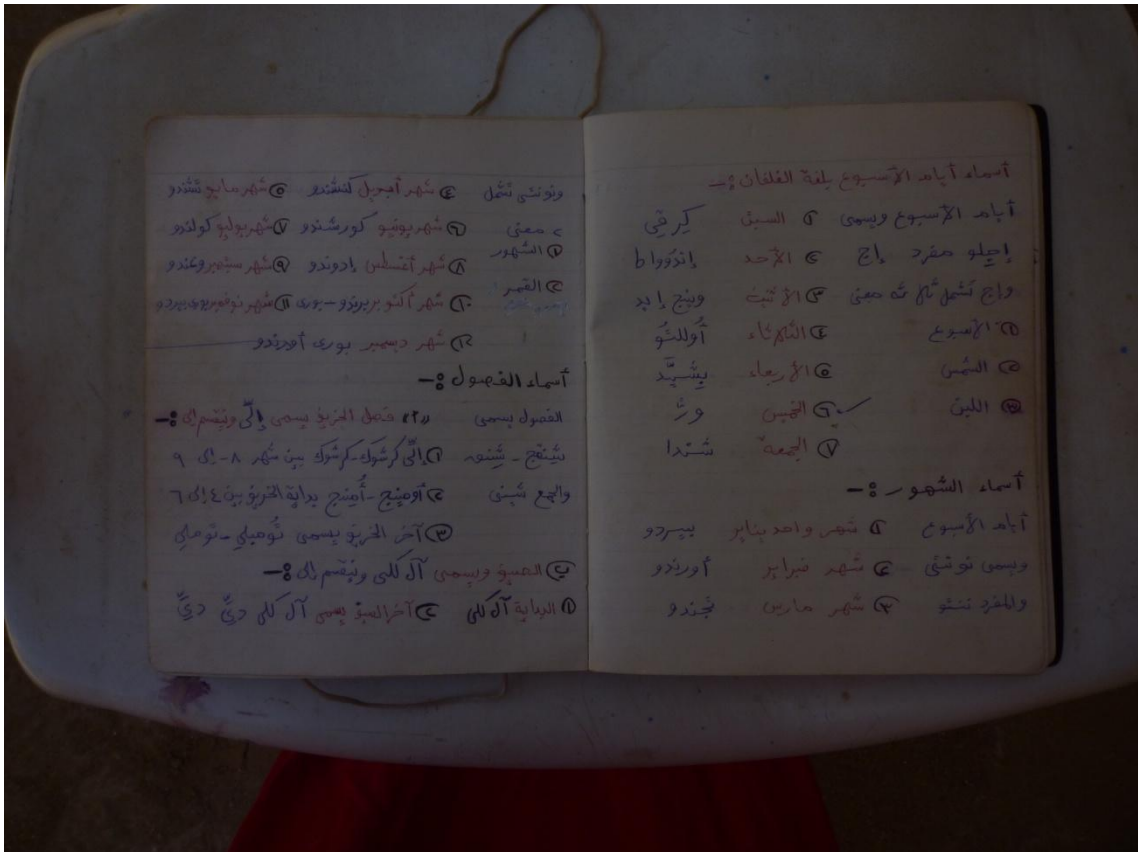 أسماء أيامد الأسبوع بلغة الفلفان :-
أيامد الأسبوع ويسمى ① السبت كِرقي
إجلو مفرد إج ② الأحد إندوواط
واج تشمل ثلاثه معنى ③ الأثنين وينج إيد
① الأسبوع ④ الثلاثاء أوللتو
② الشمس ⑤ الأربعاء يشيد
③ اللبن ⑥ الخميس
⑦ الجمعة شندا
أسماء الشهور :-
أيامد الأسبوع ① شهر واحد يناير بيبردو
ويسمى نونتي ② شهر فبراير أورندو
والمفرد ③ شهر مارس نجندو
ونونتي تشمل ④ شهر أبريل كنشندو ⑤ شهر مايو
٢ معنى ⑥ شهر يونيو كورشندو ⑦ شهر يوليو كولندو
① الشهور ⑧ شهر أغسطس إدوندو ⑨ شهر سبتمبر
② القمر ⑩ شهر أكتوبر برندو - بوري ⑪ شهر نوفمبر
⑫ شهر ديسمبر بوري أورندو
أسماء الفصول :-
الفصول يسمى «١» فصل الخريف يسمى إلِّى وينقسم إلى :-
شينقج - ① إلِّى كرشوك - كرشوك بين شهر ٨ - إلى ٩
والجمع شينى ② أومنج - أُمنج بداية الخريف بين ٤ إلى ٦
③ آخر الخريف يسمى تُوميلي - توملي
ب) الصيف ويسمى آل لكى وينقسم إلى :-
① البداية آل كلى ② آخر الصيف يسمى آل كلى ديِّ ديِّ